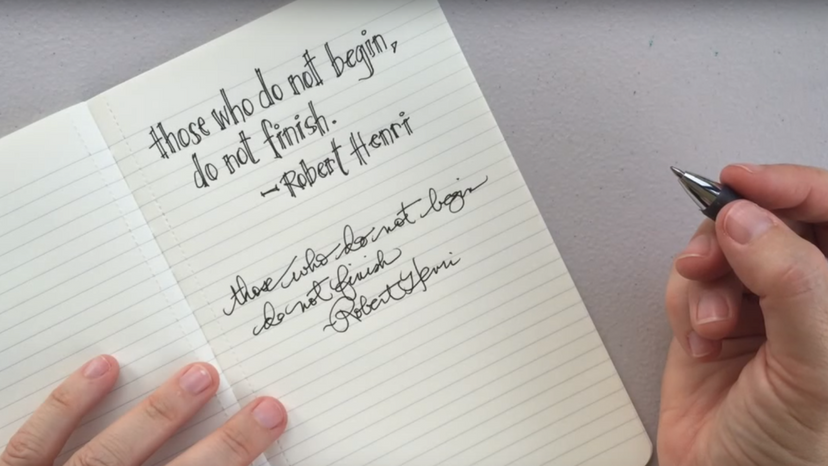 those who do not begin,
do not finish.
- Robert Henri
those who do not begin
do not finish
- Robert Henri